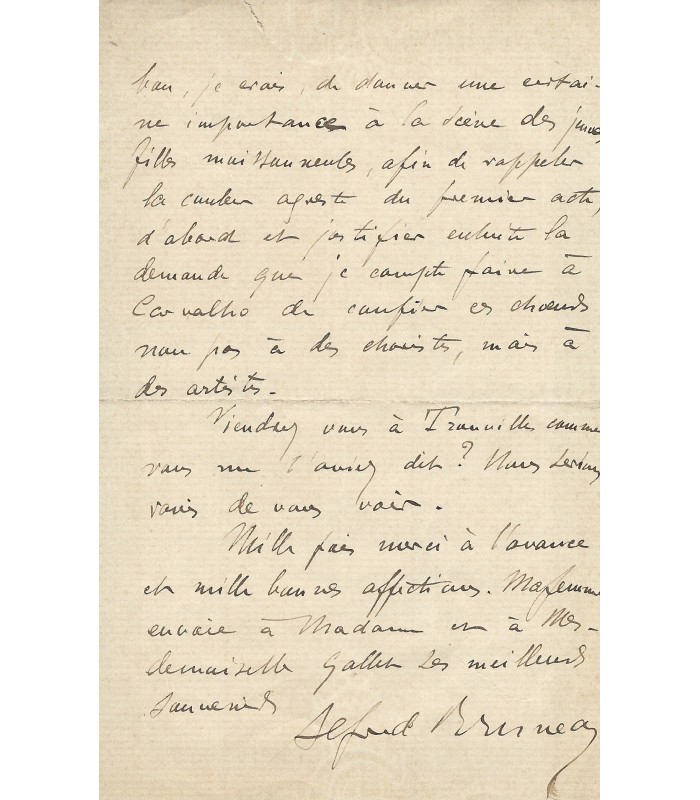 bon, je crois, de donner une certai-
ne importance à la scène des jeunes
filles moissonneuses, afin de rappeler
la couleur agreste du premier acte,
d'abord et justifier ensuite la
demande que je compte faire à
Carvalho de confier ces chœurs
non pas à des choristes, mais à
des artistes.
Viendrez vous à Trouville comme
vous me l'aviez dit ? Nous serions
ravis de vous voir.
Mille fois merci à l'avance
et mille bonnes affections. Ma femme
envoie à Madame et à Mes-
demoiselle Gallet ses meilleurs
souvenirs
Alfred Bruneau